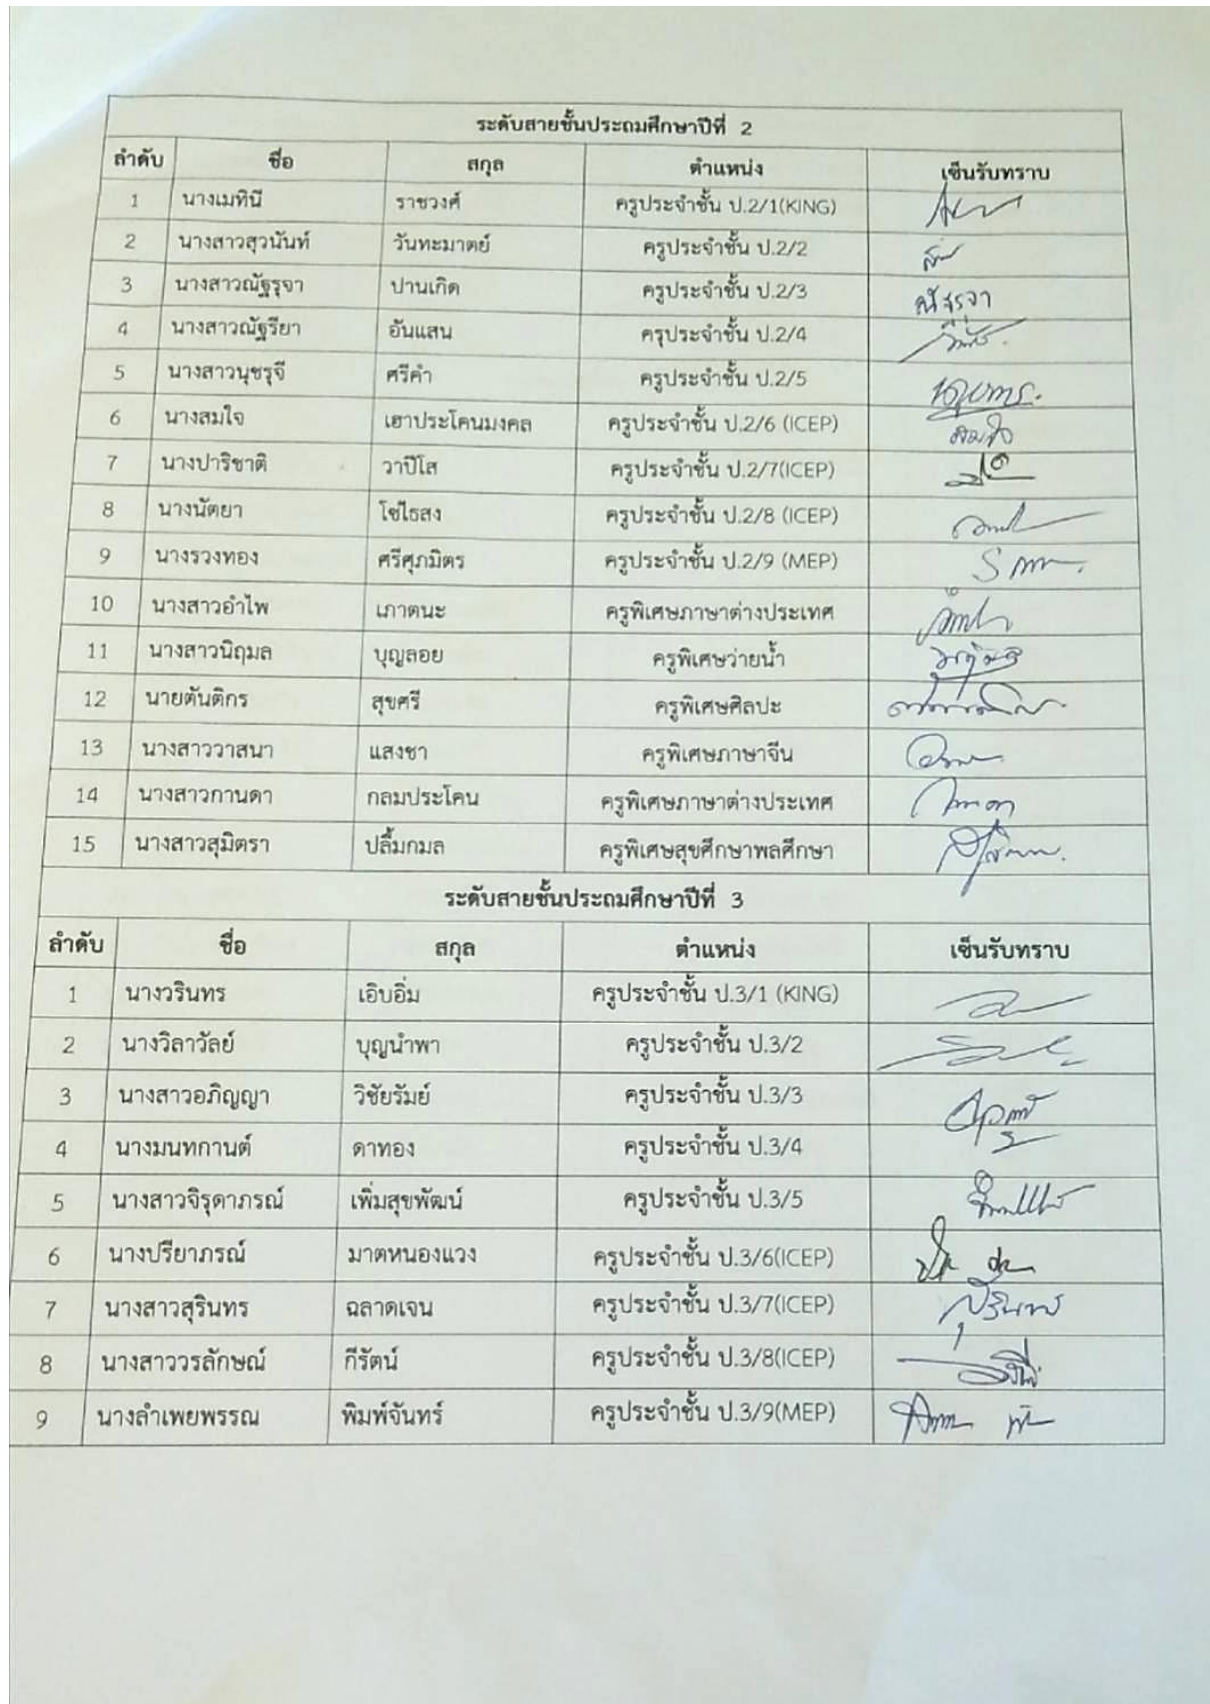 ระดับสายชั้นประถมศึกษาปีที่ 2
ลำดับ ชื่อ สกุล ตำแหน่ง เซ็นรับทราบ
1 นางเมทินี ราชวงศ์ ครูประจำชั้น ป.2/1(KING)
2 นางสาวสุวนันท์ วันทะมาตย์ ครูประจำชั้น ป.2/2
3 นางสาวณัฐรุจา ปานเกิด ครูประจำชั้น ป.2/3 ณัฐรุจา
4 นางสาวณัฐรียา อันแสน ครุประจำชั้น ป.2/4
5 นางสาวนุชรุจี ศรีคำ ครูประจำชั้น ป.2/5
6 นางสมใจ เฮาประโคนมงคล ครูประจำชั้น ป.2/6 (ICEP) สมใจ
7 นางปาริชาติ วาปีโส ครูประจำชั้น ป.2/7(ICEP)
8 นางนัตยา โซ่ไธสง ครูประจำชั้น ป.2/8 (ICEP)
9 นางรวงทอง ศรีศุภมิตร ครูประจำชั้น ป.2/9 (MEP)
10 นางสาวอำไพ เภาตนะ ครูพิเศษภาษาต่างประเทศ
11 นางสาวนิฤมล บุญลอย ครูพิเศษว่ายน้ำ
12 นายตันติกร สุขศรี ครูพิเศษศิลปะ
13 นางสาววาสนา แสงชา ครูพิเศษภาษาจีน
14 นางสาวกานดา กลมประโคน ครูพิเศษภาษาต่างประเทศ
15 นางสาวสุมิตรา ปลื้มกมล ครูพิเศษสุขศึกษาพลศึกษา
ระดับสายชั้นประถมศึกษาปีที่ 3
ลำดับ ชื่อ สกุล ตำแหน่ง เซ็นรับทราบ
1 นางวรินทร เอิบอิ่ม ครูประจำชั้น ป.3/1 (KING)
2 นางวิลาวัลย์ บุญนำพา ครูประจำชั้น ป.3/2
3 นางสาวอภิญญา วิชัยรัมย์ ครูประจำชั้น ป.3/3
4 นางมนทกานต์ ดาทอง ครูประจำชั้น ป.3/4
5 นางสาวจิรุดาภรณ์ เพิ่มสุขพัฒน์ ครูประจำชั้น ป.3/5
6 นางปรียาภรณ์ มาตหนองแวง ครูประจำชั้น ป.3/6(ICEP)
7 นางสาวสุรินทร ฉลาดเจน ครูประจำชั้น ป.3/7(ICEP)
8 นางสาววรลักษณ์ กีรัตน์ ครูประจำชั้น ป.3/8(ICEP)
9 นางลำเพยพรรณ พิมพ์จันทร์ ครูประจำชั้น ป.3/9(MEP)